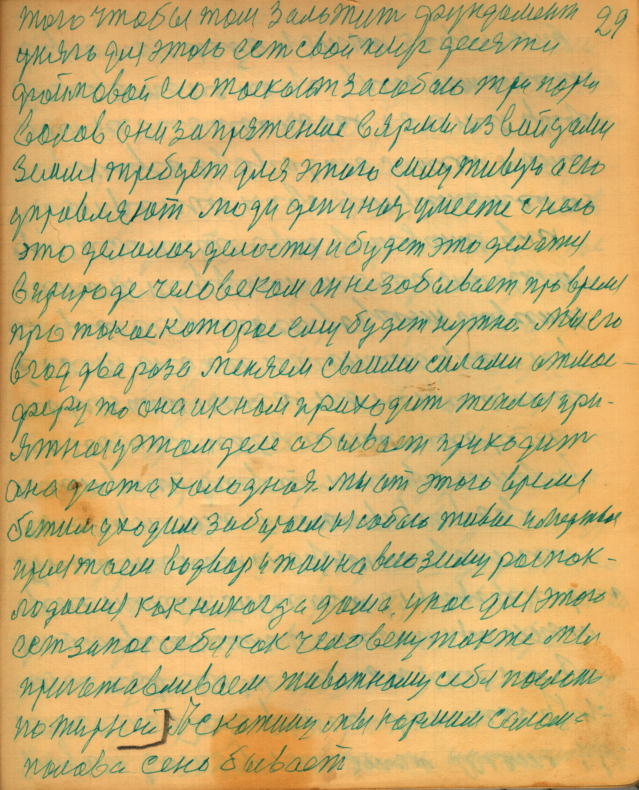 того чтобы там заложит фундамент 29
унять для этого ест свой плуг десяти
дюймовой его таскают за собою три пари
волов они запряженые в ярмы из войдами
Земля требует для этого силу живую а его
управляют люди депиноя умеете с нею
это делалося делости и будет это делатися
в природе человеком он не забывает про время
про такое которое ему будет нужно. Мы его
в год два раза меняем своими силами атмос-
феру то она и к нам приходит теплая при-
ятная у этом деле а бывает приходит
она дюжа холодная мы от этого время
бежим уходим забираем и с собою живые и мертвые
приезжаем во двор и там на всю зиму роспок-
лодаемся как никогда дома, у нас для этого
ест запас себе как человеку также мы
приготавливаем животному себе поесть
по жирней] А скотину мы кормим солома
полова сено бывает